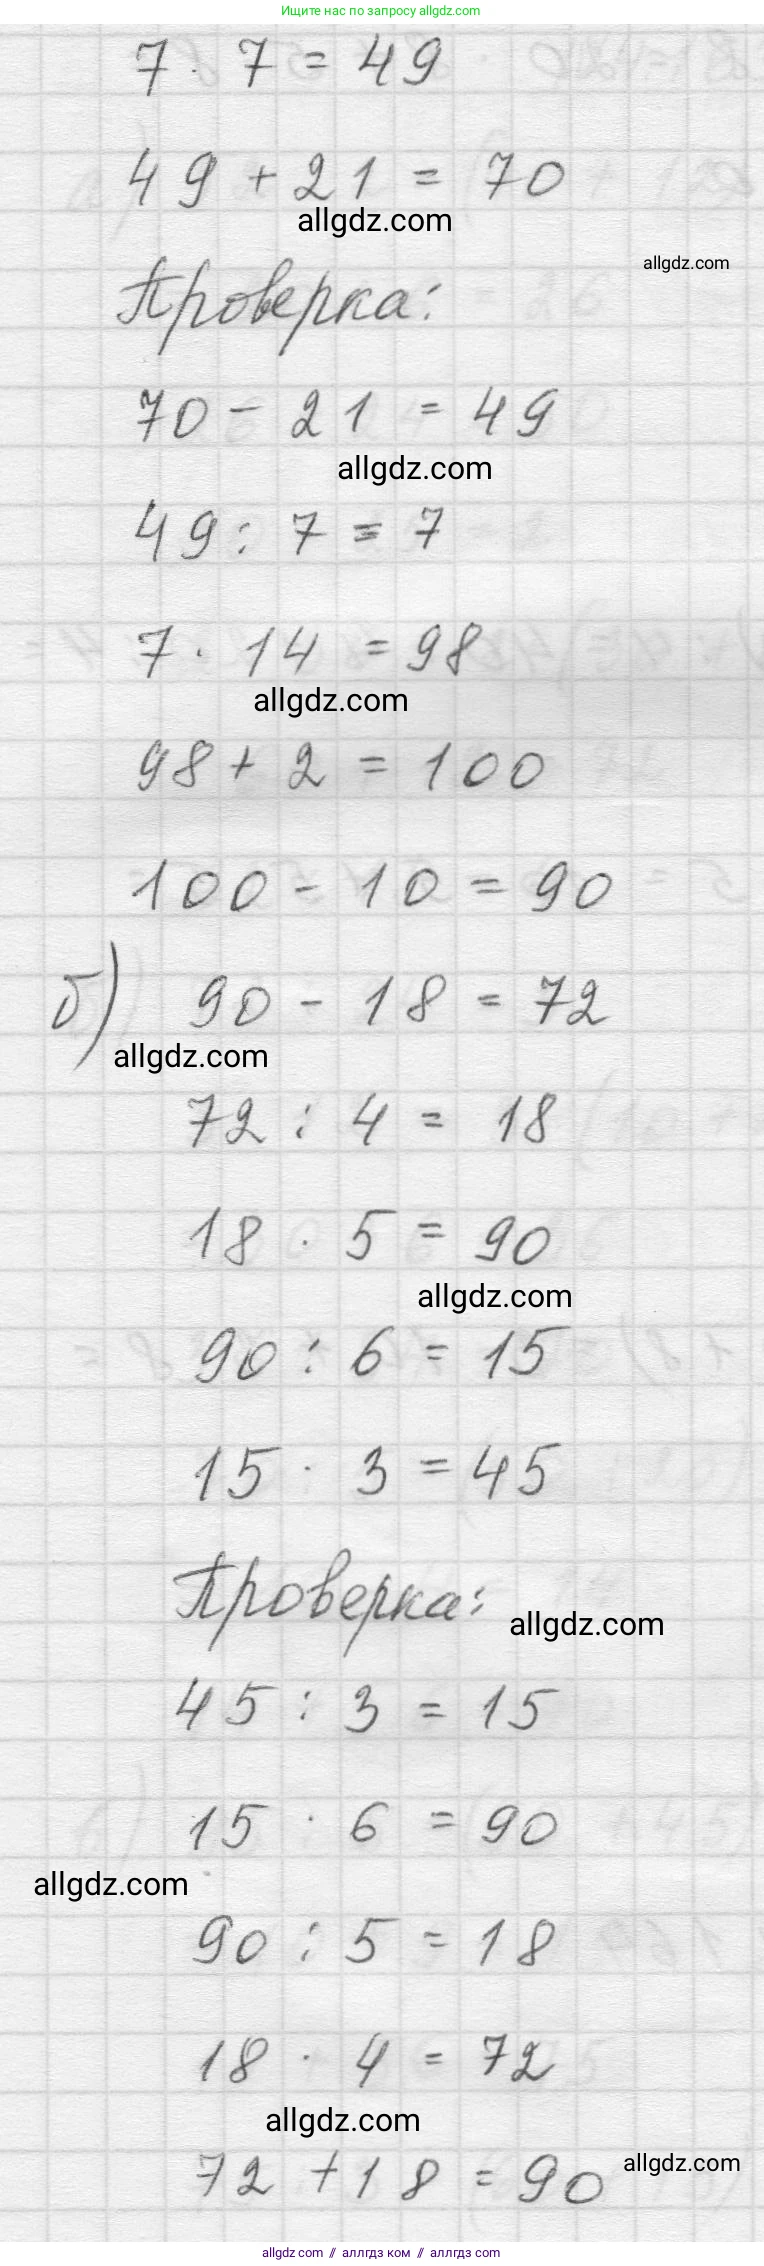 Ищите нас по запросу allgdz.com
7 · 7 = 49
49 + 21 = 70
allgdz.com
allgdz.com
Проверка:
70 - 21 = 49
allgdz.com
49 : 7 = 7
7 · 14 = 98
allgdz.com
98 + 2 = 100
100 - 10 = 90
б) 90 - 18 = 72
allgdz.com
72 : 4 = 18
18 · 5 = 90
allgdz.com
90 : 6 = 15
15 · 3 = 45
Проверка:
allgdz.com
45 : 3 = 15
15 · 6 = 90
allgdz.com
90 : 5 = 18
18 · 4 = 72
allgdz.com
72 + 18 = 90
allgdz.com
allgdz com // аллгдз ком // allgdz com